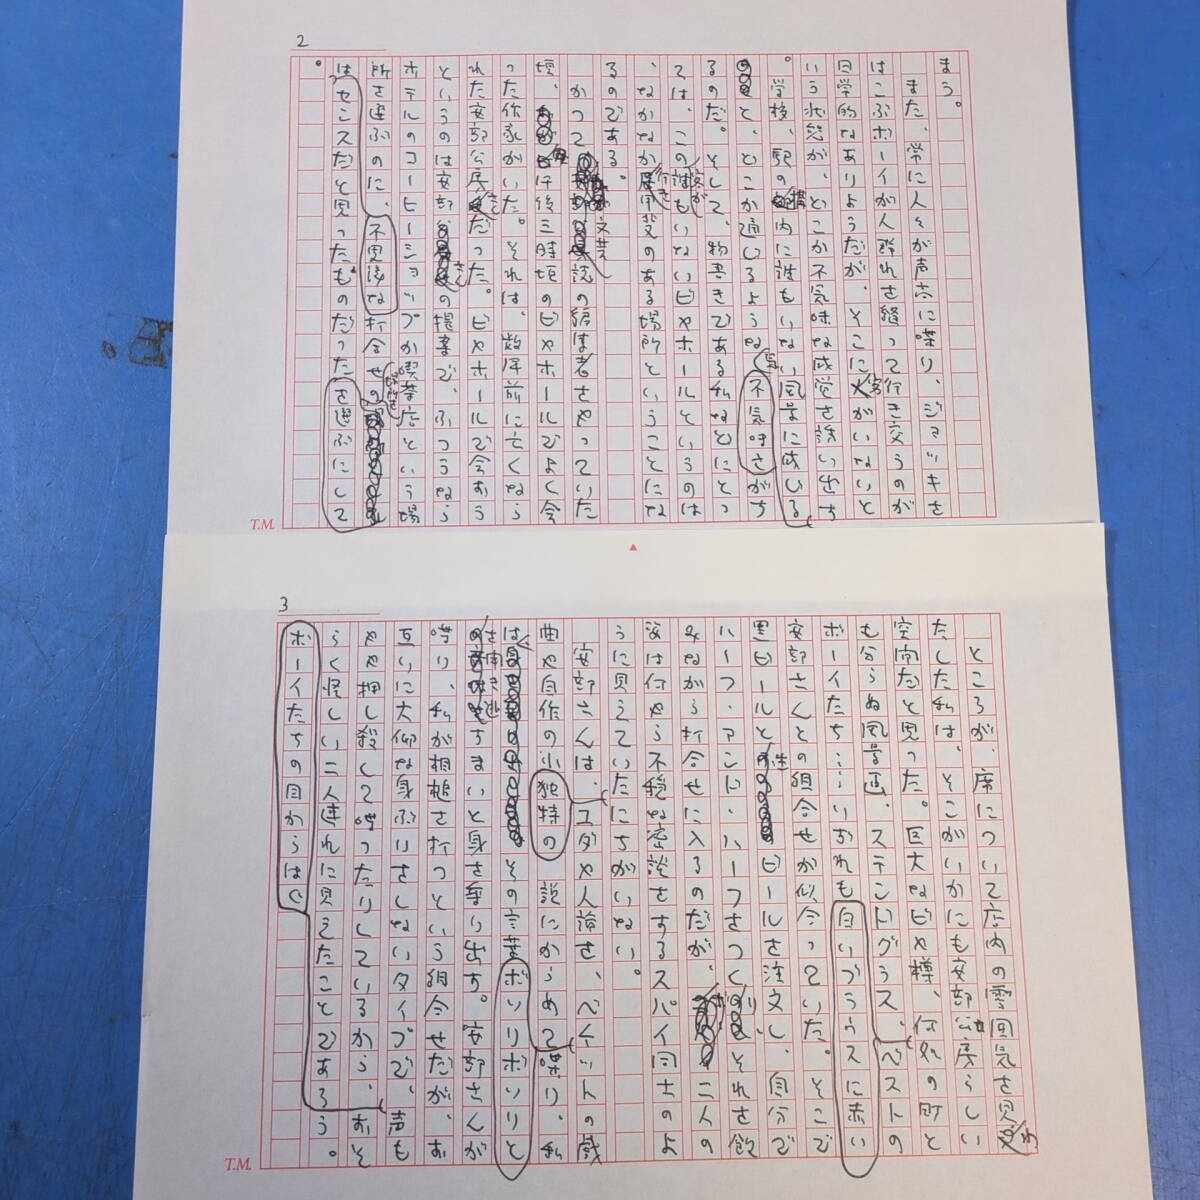 2
まう。
また、常に人々が声高に喋り、ジョッキを
はこぶボーイが人群れを縫って行き交うのが
日常的なありようだが、そこに客がいないと
いう状態が、どこか不気味な感覚を誘い出す
。学校、駅の構内に誰もいない風景に感じる
のと、どこか通じるような不気味さが
るのだ。そして、物書きである私などにとっ
ては、この誰もいないビヤホールというのは
、なかなか居心地のある場所ということにな
るのである。
かつて文芸誌の編集者をやっていた
頃、毎日午後三時頃のビヤホールでよく会
った作家がいた。それは、数年前に亡くなら
れた安部公房さんだった。ビヤホールで会おう
というのは安部さんの提案で、ふつうなら
ホテルのコーヒーショップか喫茶店という場
所を選ぶのに、不思議な打合せの場所を
はセンスだと思ったものだった を選ぶにして
。
T.M.
3
ところが、席について店内の雰囲気を見わ
たした私は、そこがいかにも安部公房らしい
空間だと思った。巨大なビヤ樽、何処の町と
も分らぬ風景画、ステンドグラス、ベストの
ボーイたち……いずれも白いブラウスに赤い
安部さんとの組合せが似合っていた。そこで
黒ビールと生ビールを注文し、自分で
ハーフ・アンド・ハーフをつくり、それを飲
みながら打合せに入るのだが、二人の
姿は何やら不穏な密談をするスパイ同士のよ
うに見えていたにちがいない。
安部さんは、ユダヤ人論を、ベケットの戯
曲や自作の小独特の説にからめて喋り、私
はその言葉ボソリボソリと
を聞き逃すまいと身を乗り出す。安部さんが
喋り、私が相槌を打つという組合せだが、お
互いに大仰な身ぶりをしないタイプで、声も
やや押し殺して喋ったりしているから、おそ
らく怪しい二人連れに見えたことであろう。
ボーイたちの目からは
T.M.